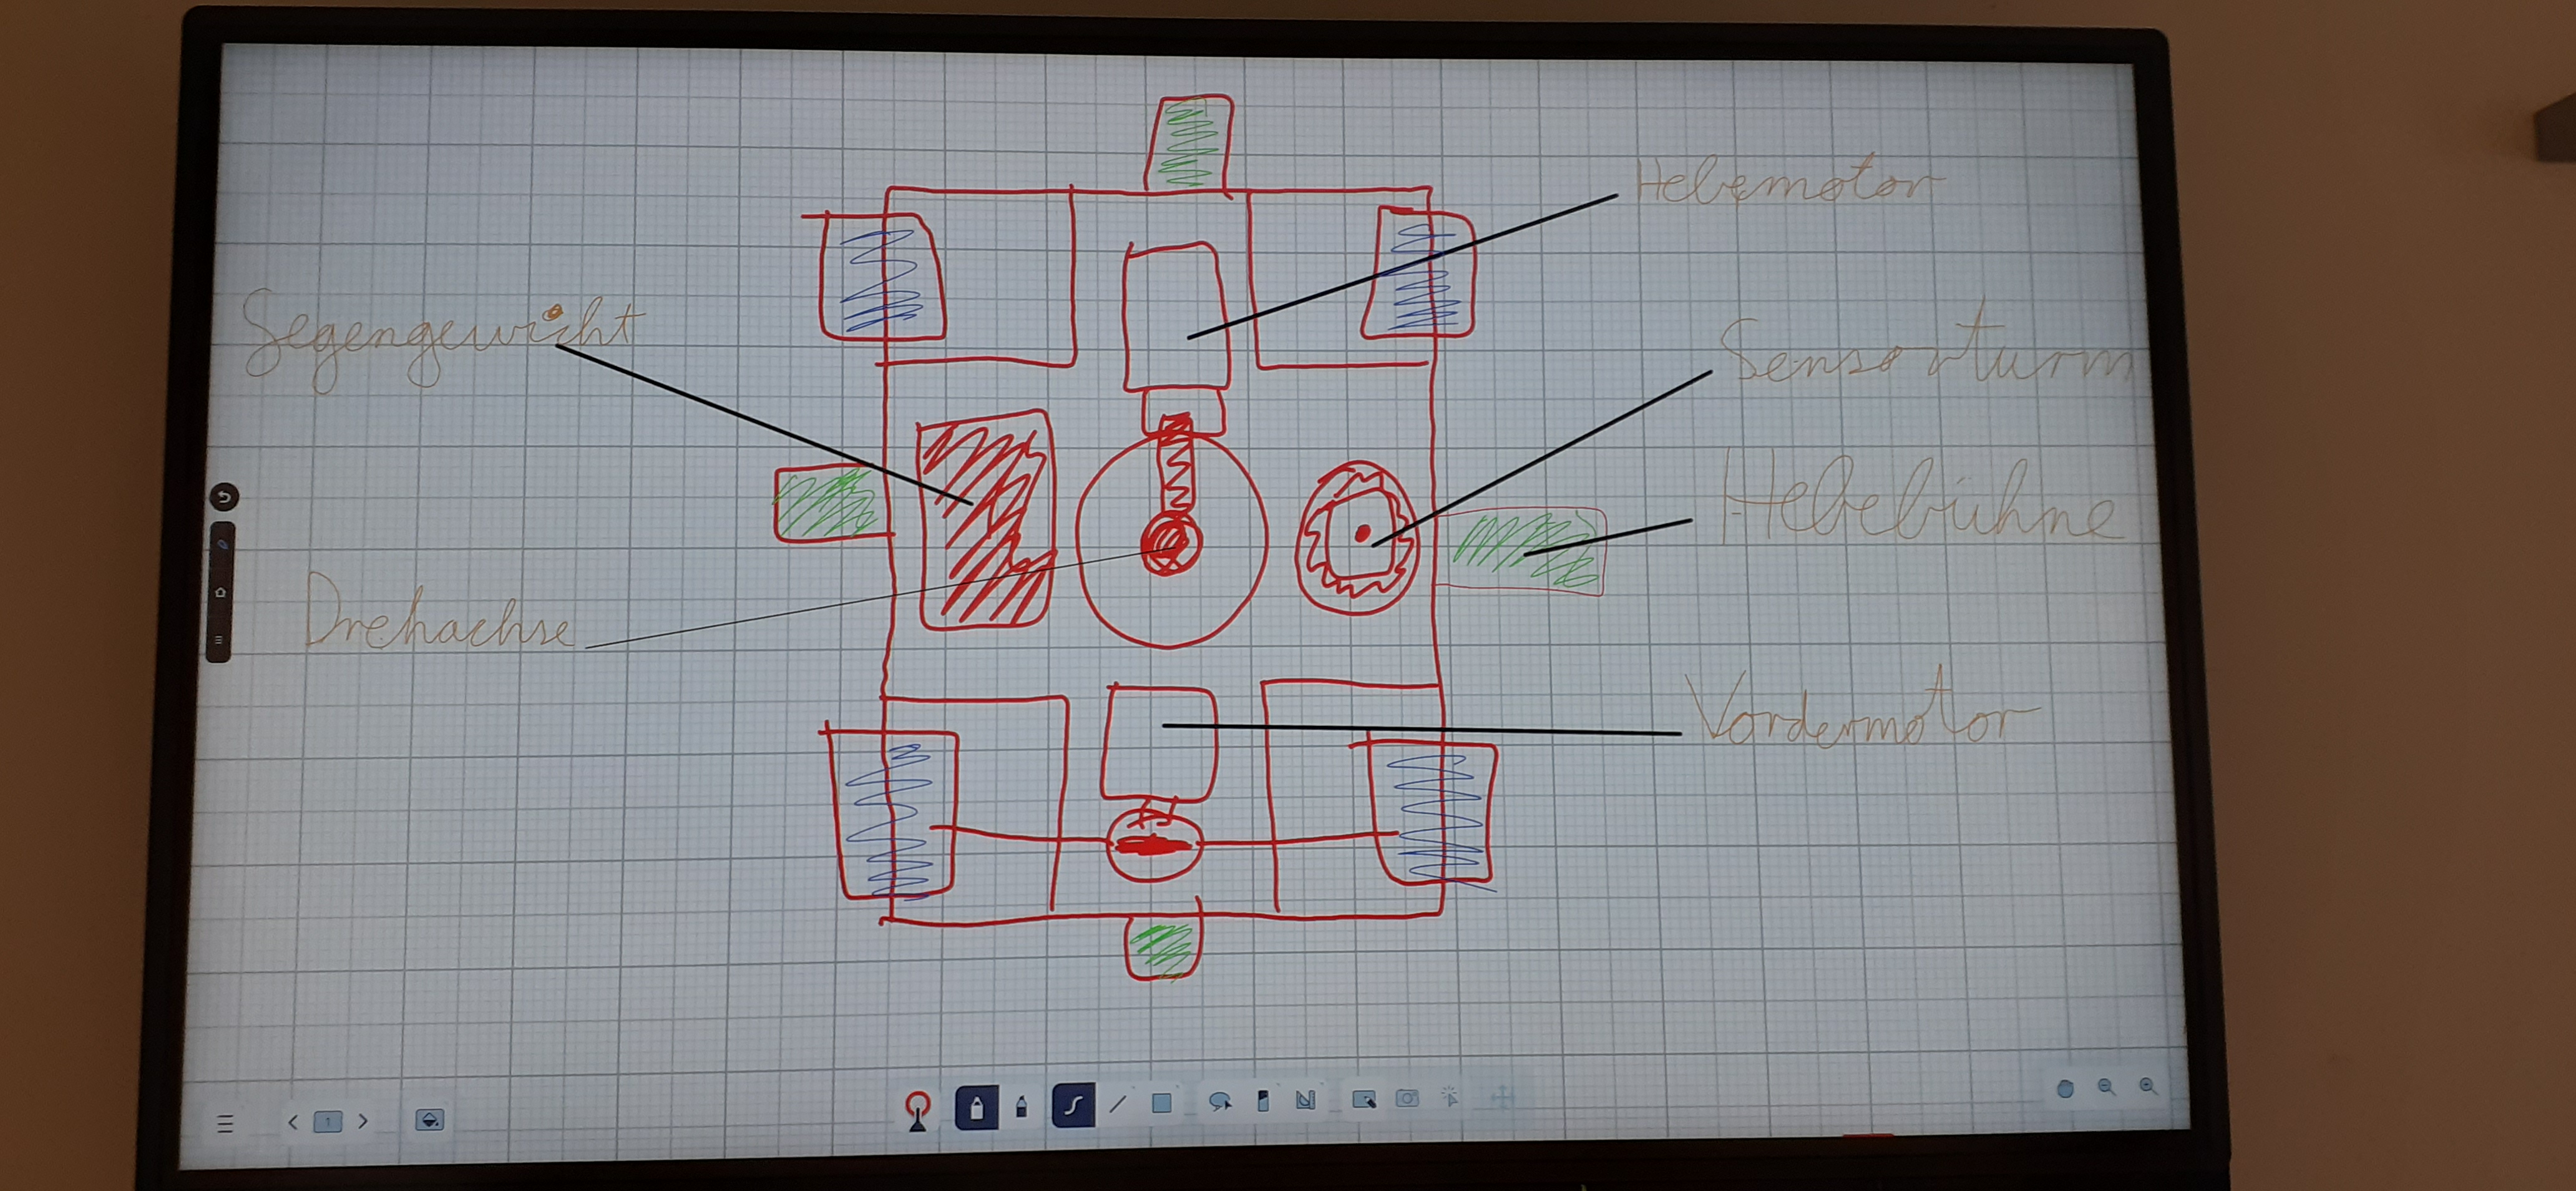 Hebemotor
Gegengewicht
Sensorturm
Hebebühne
Drehachse
Vordermotor
1